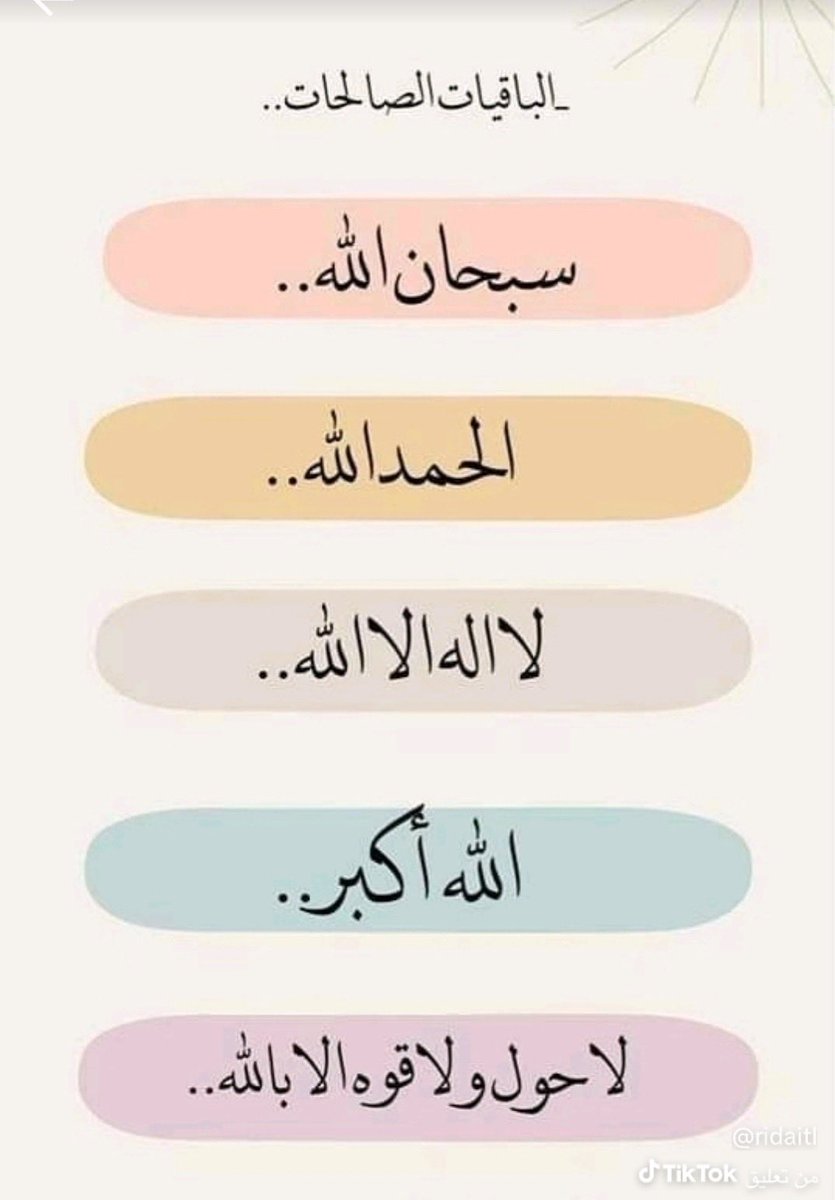 _الباقيات الصالحات..
سبحان الله..
الحمدالله..
لا اله الا الله..
الله أكبر..
لا حول ولا قوه الا بالله..
@ridaitl
من تعليق TikTok